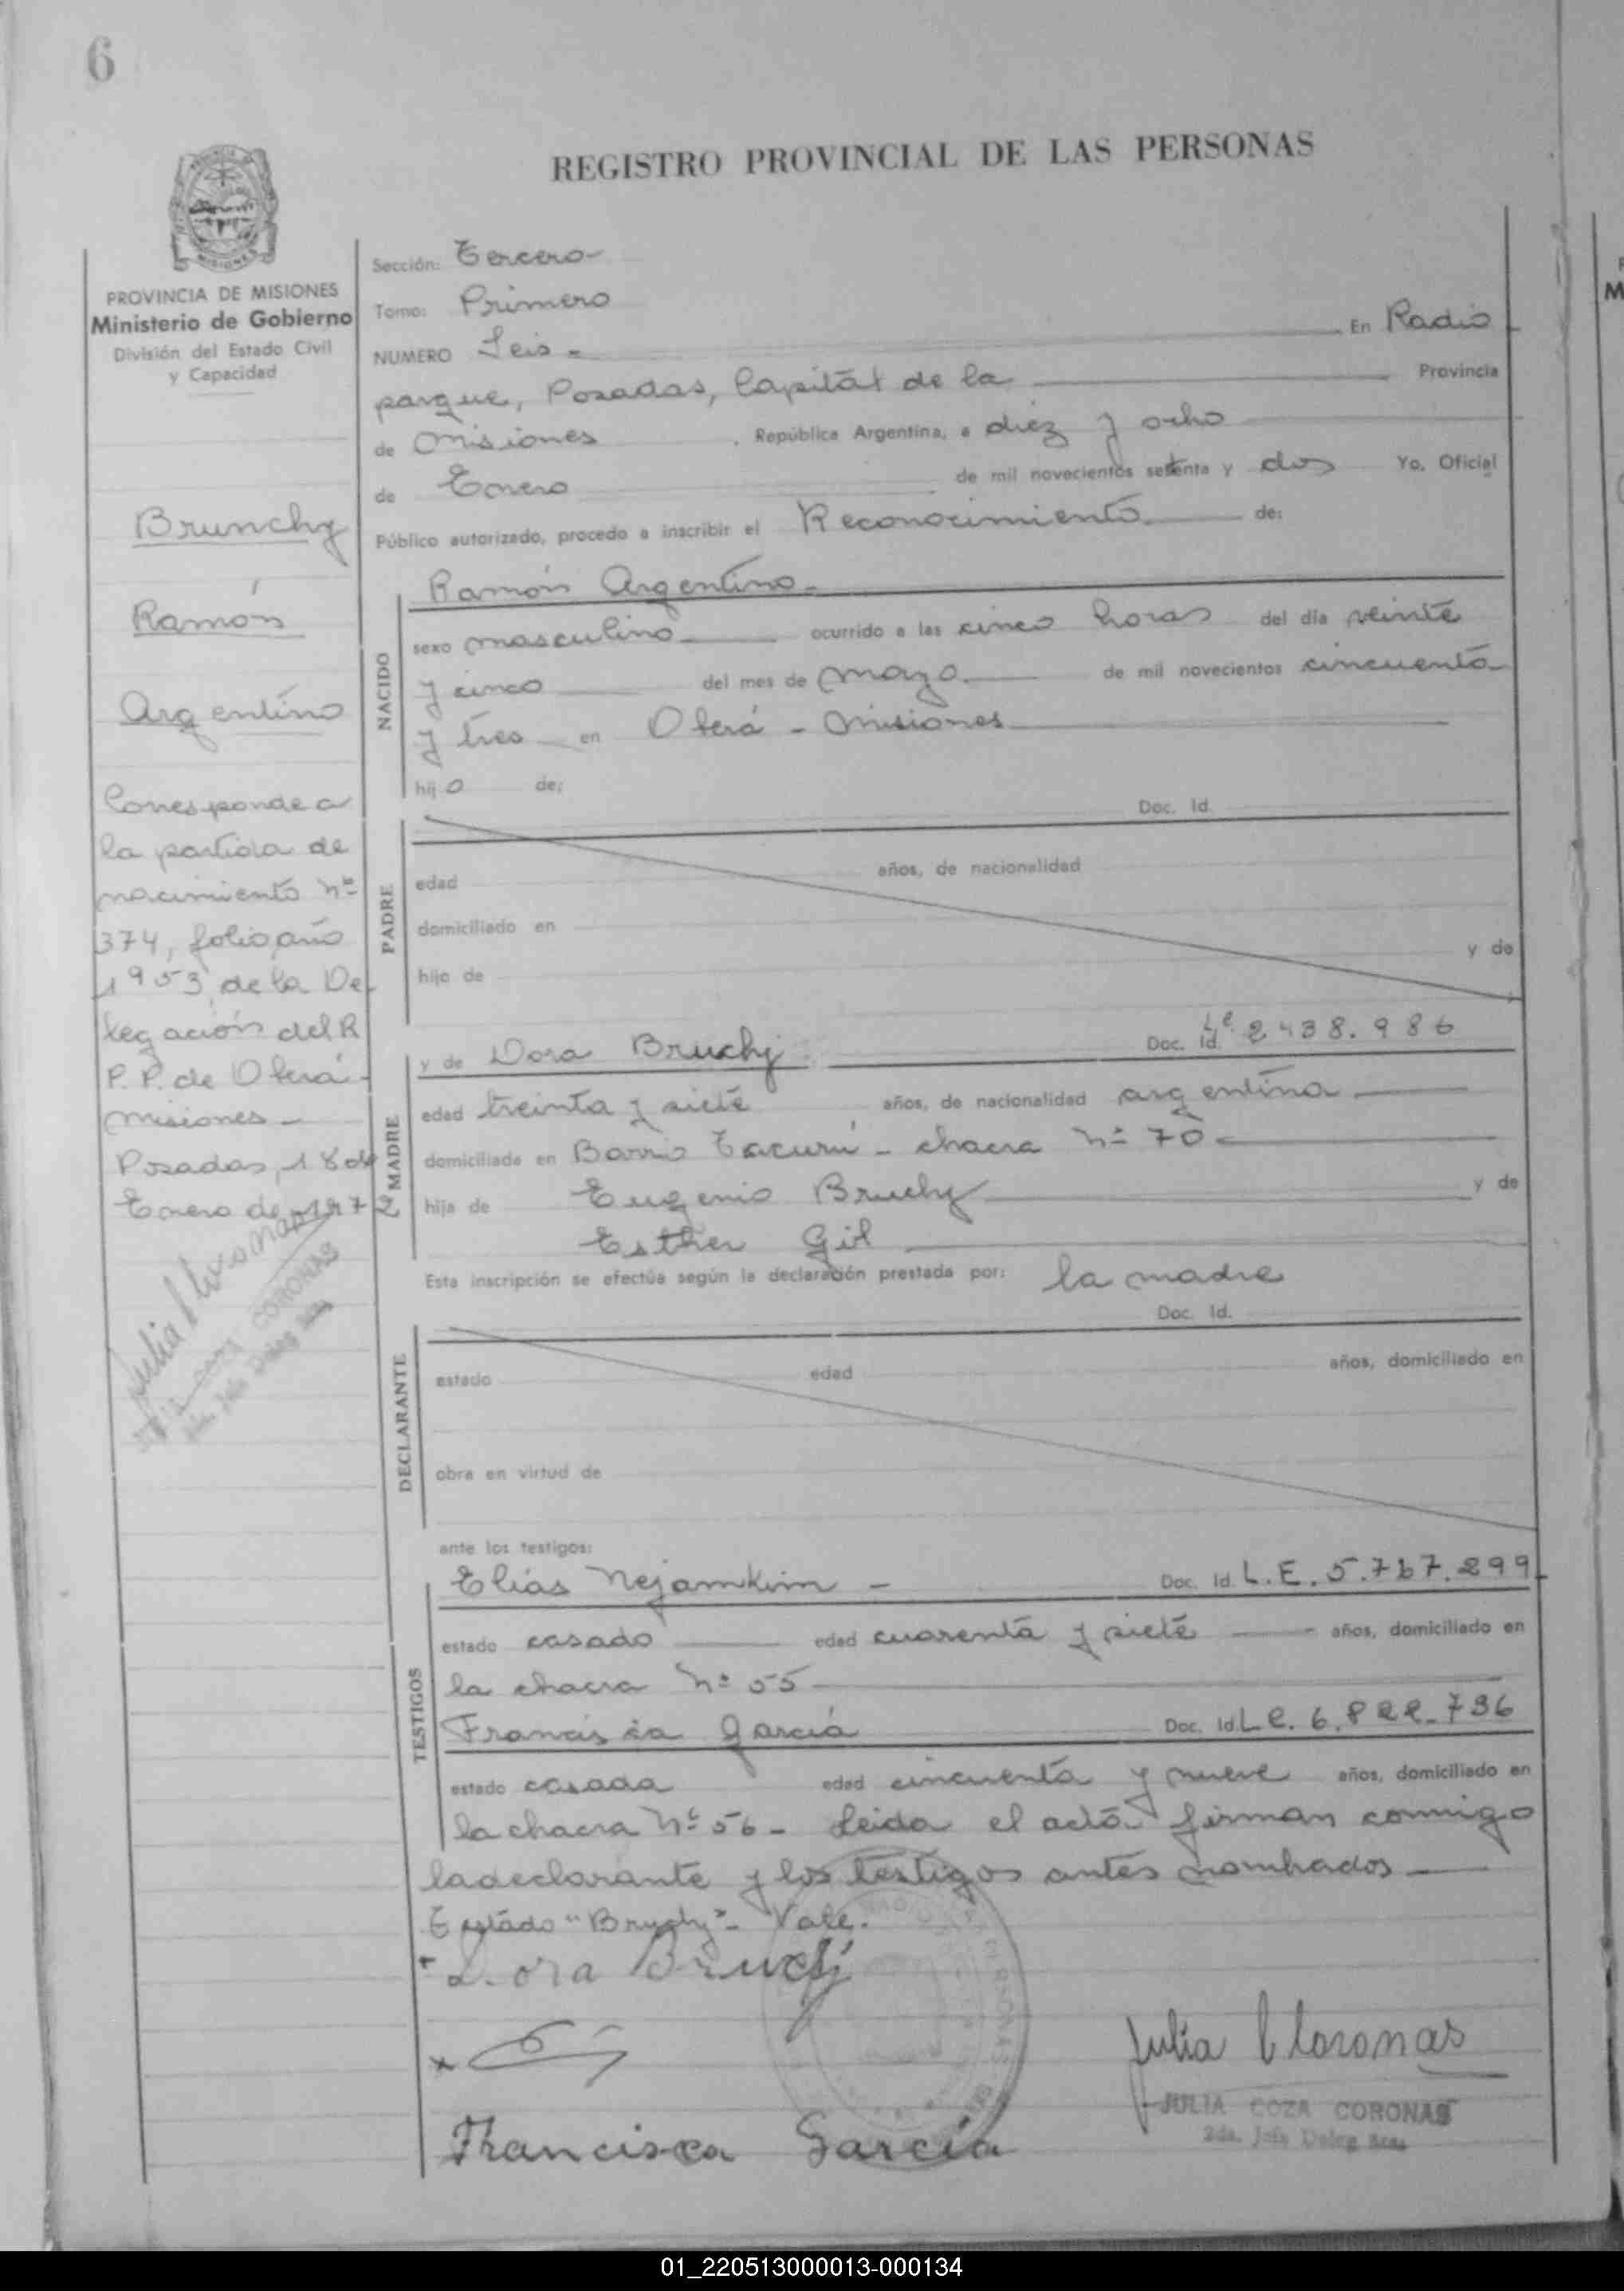 6
REGISTRO PROVINCIAL DE LAS PERSONAS
MISIONES
PROVINCIA DE MISIONES
Ministerio de Gobierno
División del Estado Civil
y Capacidad
Brunchy
Ramón
Argentino
Corresponde a
la partida de
nacimiento nº
374, folio, año
1953, de la De
legación del R
P. P. de Oberá-
Misiones -
Posadas, 18 de
Enero de 1972
Sección: Tercero-
Tomo: Primero
NUMERO Seis - En Radio
parque, Posadas, Capital de la Provincia
de Misiones , República Argentina, a diez y ocho
de Enero de mil novecientos setenta y dos Yo, Oficial
Público autorizado, procedo a inscribir el Reconocimiento de:
NACIDO
Ramón Argentino-
sexo masculino ocurrido a las cinco horas del día veinte
y cinco del mes de mayo de mil novecientos cincuenta
y tres en Oberá - Misiones
hijo de:
PADRE
Doc. Id.
edad años, de nacionalidad
domiciliado en
hijo de y de
MADRE
y de Dora Bruchy Doc. Id. Lc. 2438.986
edad treinta y siete años, de nacionalidad argentina
domiciliada en Barrio Tacurú - chacra nº 70 -
hija de Eugenio Bruchy y de
Esther Gil
Esta inscripción se efectúa según la declaración prestada por: la madre
DECLARANTE
Doc. Id.
estado edad años, domiciliado en
obra en virtud de
ante los testigos:
TESTIGOS
Elías Nejamkim - Doc. Id. L.E. 5.767.299
estado casado edad cuarenta y siete años, domiciliado en
la chacra nº 55
Francisca García Doc. Id. Lc. 6.822.736
estado casada edad cincuenta y nueve años, domiciliado en
la chacra nº 56 - Leida el acta firman conmigo
la declarante y los testigos antes nombrados
"Bruchy" - Vale.
Dora Bruchy
Francisca García
Julia C Coronas
JULIA COZA CORONAS
2da. Jefe Deleg.
01_220513000013-000134